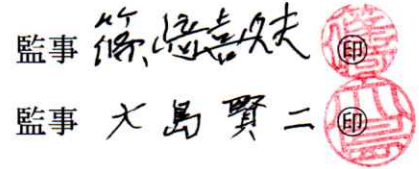 監事 篠𠩤喜久夫 ㊞
監事 大島賢二 ㊞